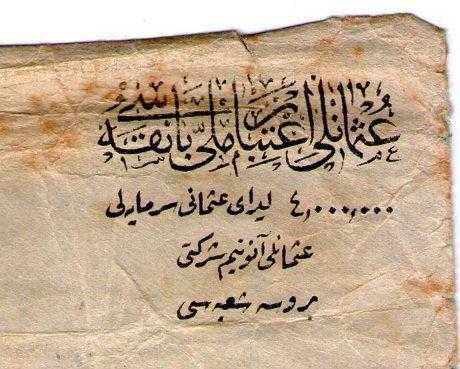 عثمانلی اعتبار ملی بانقه سی
٤,٠٠٠,٠٠٠ لیرای عثمانی سرمایه لی
عثمانلی آنونیم شرکتی
بروسه شعبه سی